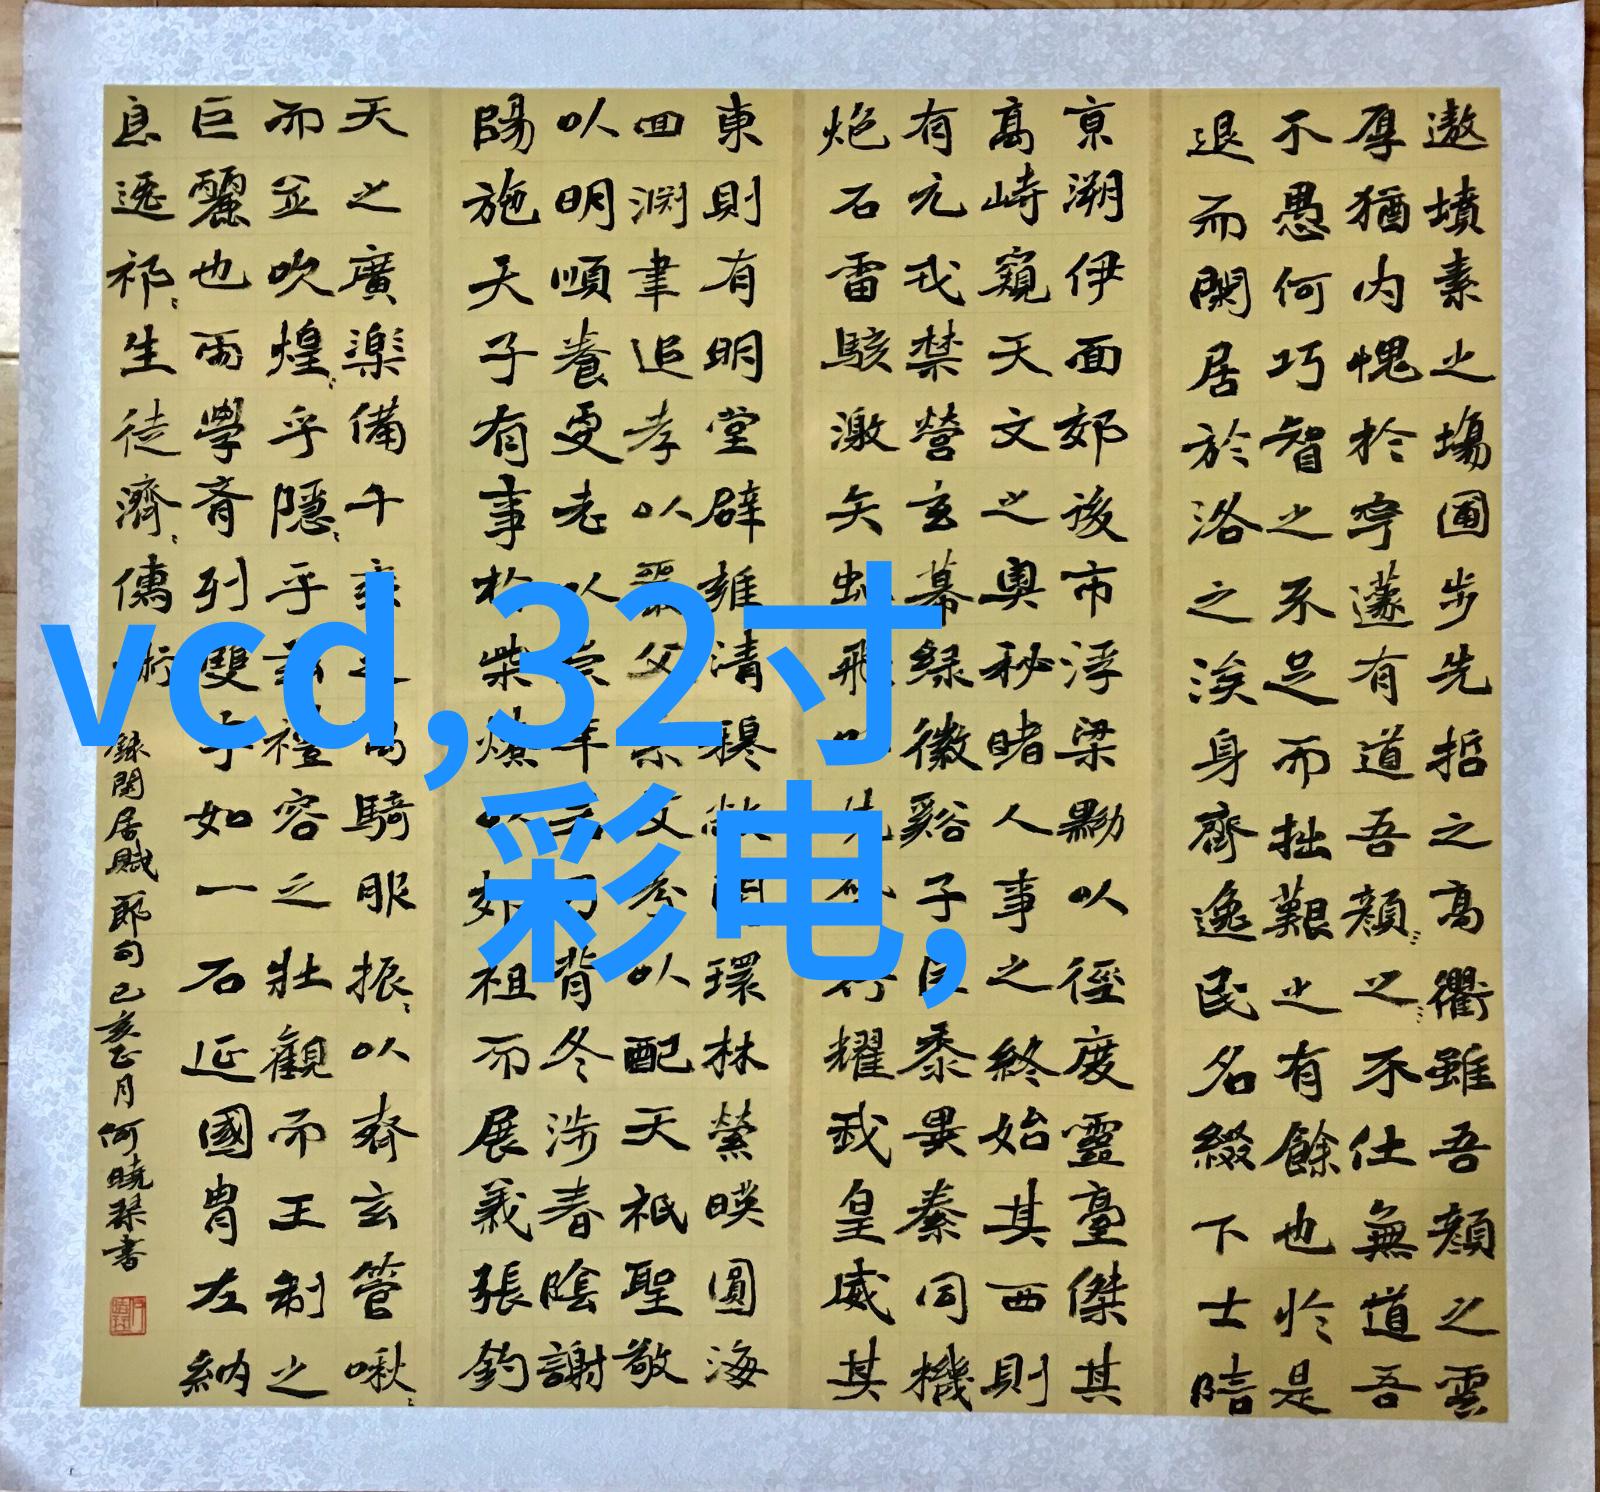 遨墳素之場圃步先哲之高衢雖吾顏之雲
厚猶内愧於寧蘧有道吾顏〻之不仕無道吾
不愚何巧智之不足而拙艱之有餘也於是
退而閑居於洛之涘身齊逸民名綴下士陪
京溯伊面郊後市浮梁黝以徑度靈臺傑其
高峙窺天文之奥秘睹人事之終始其西則
有元戎禁營玄幕緑徽谿子巨黍異絭同機
炮石雷駭激矢虻飛以先啓行耀我皇威其
東則有明堂辟雍清穆敞閑環林縈映圓海
回淵聿追孝以嚴父宗文考以配天祗聖敬
以明順養更老以崇年背冬涉春陰謝
陽施天子有事於柴燎以郊祖而展義張鈞
天之廣樂備千乘之萬騎服振〻以齊玄管啾〻
而並吹煌〻乎隱〻乎茲禮容之壯觀而王制之
巨麗也兩學齊列雙宇如一右延國胄左納
良逸祁〻生徒濟〻儒術
錄閑居賦節句己亥正月何曉琹書
vcd,32寸
彩电,